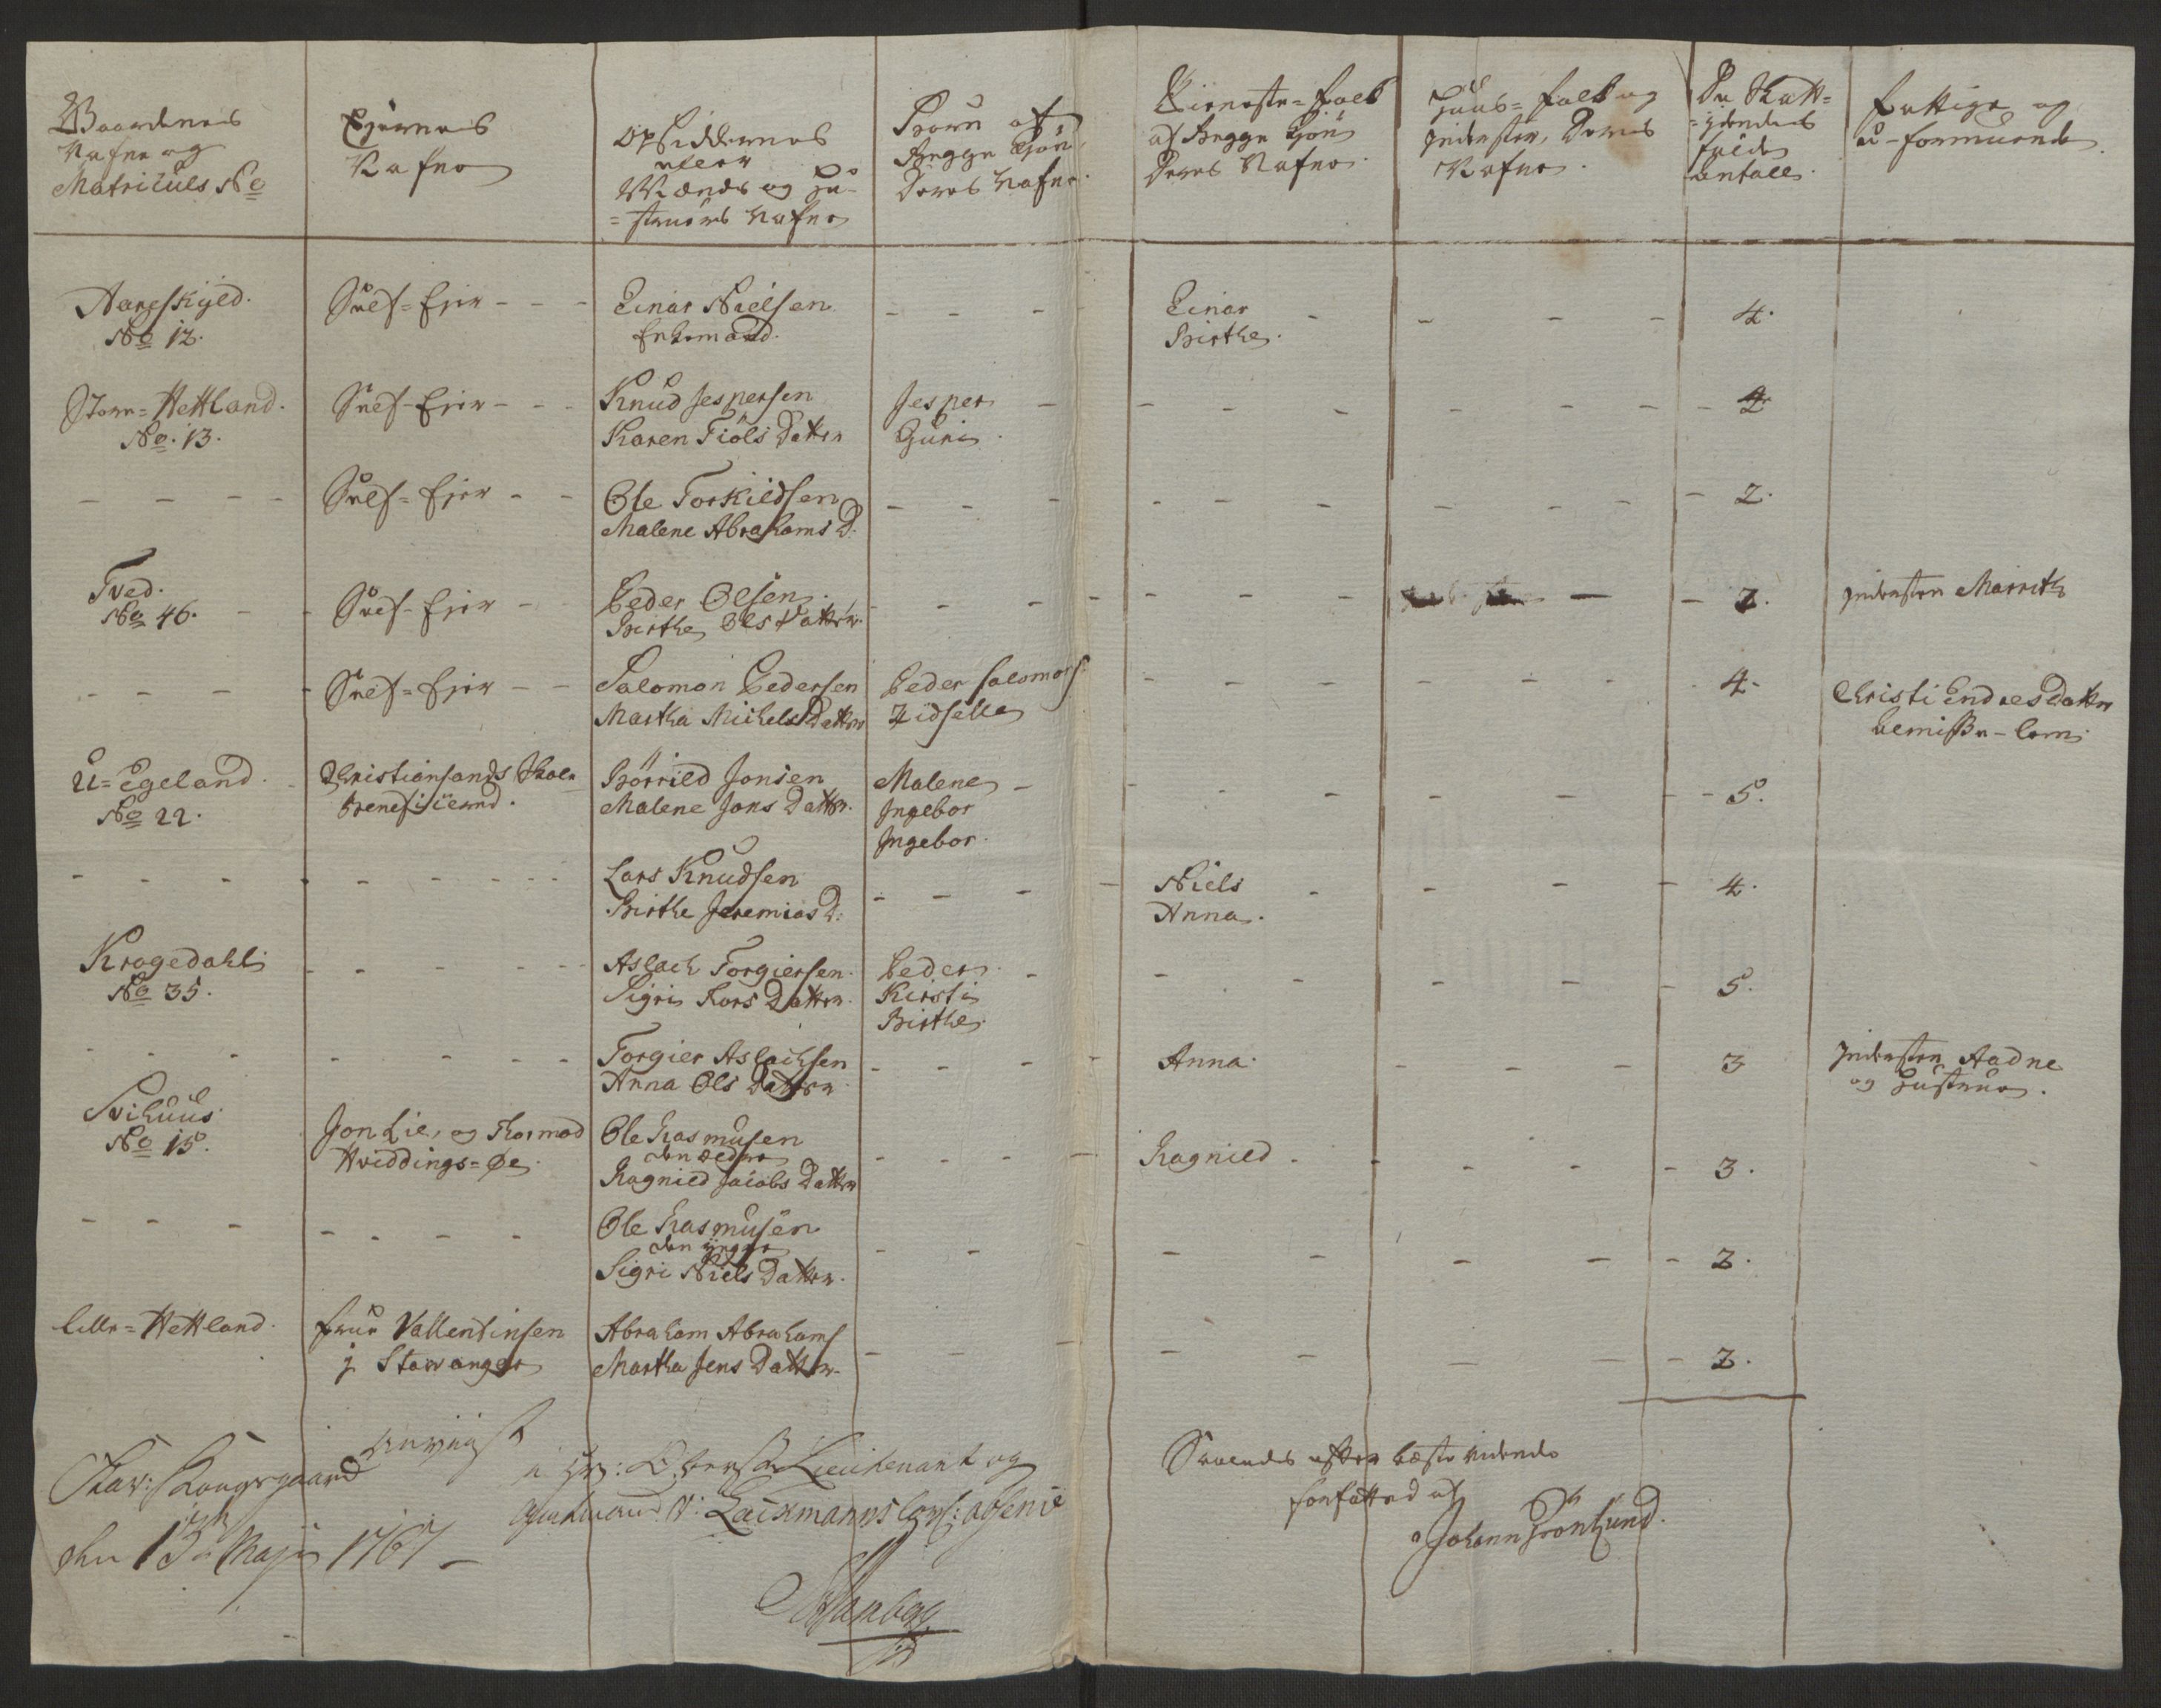 Gaardenes
Nafne og
Matriculs No
Ejernes
Nafne
Opsiddernes
eller
Mænds og Hu-
=struers Nafne
Børn af
Begge Kiøn,
Deres Nafne.
Tieneste=Folk
af Begge Kiøn
Deres Nafne.
Huus=Folk og
Inderster, Deres
Nafne.
De Skatt=
=ydendes
fulde
antall.
Fattige og
u-formuende.
Aareskjld.
No 12.
Self=Ejer - - -
Einar Nielsen
Enkemand.
- - -
Einar
Birthe.
- - - -
4.
Store=Hettland.
No. 13.
Self-Ejer - - -
Knud Jespersen
Karen Tiöls Datter
Jesper -
Guri.
- - - - - - -
4
- - - -
Self=Ejer - -
Ole Torkildsen
Malene Abrahams D.
- - - - - - - - -
2.
Tved.
No 46. - -
Self-Ejer -
Peder Olsen.
Birthe Ols Datter.
- - - - - - - -
2.
Inderste Marrith
- - - -
Self=Ejer - -
Salomon Pedersen
Martha Michels Datter
Peder Salomons:
Zidselle
- - - - - -
4-
Christi Endres Datter
Lem.
U=Egeland.
No 22.
Christiansands Skole
Beneficieret.
Börrild Jonsen
Malene Jons Datter.
Malene -
Ingebor
Ingebor.
- - - - - - -
5.
- - - - - - - -
Lars Knudsen
Birthe Jeremias D:
- - - -
Niels
Anna.
- - - -
4.
Kragedahl
No 35.
- - - - -
Aslach Torgiersen.
Sigri Lars Datter.
Peder. -
Kirsti
Birthe.
- - - - -
5.
- - - - - - -
Torgier Aslachsen
Anna Ols Datter
- - - -
Anna.
- - -
3
Inderste Aadne
og Hustrue.
Svihuus
No 15.
Jon Lie, og Thormod
Hviddings=Øe.
Ole Rasmusen
den ældre
Ragnild Jacobs Datter
- - - -
Ragnild -
- - - -
3.
- - - - - - -
Ole Rasmusen
den yngre
Sigri Niels Datter.
- - - - - - -
2.
Lille=Hettland.
Frue Vallentinsen
i Stavanger
Abraham Abrahams
Martha Jens Datter.
- - - - - - - -
2.
Stav: Kongsgaard
den 13de Maji 1767 -
i Hr: Oberst Lieutenant og
Amtmand V: Lackmanns Absence
Saaledes efter beste vidende
forfattet af
Johann Grönlund.